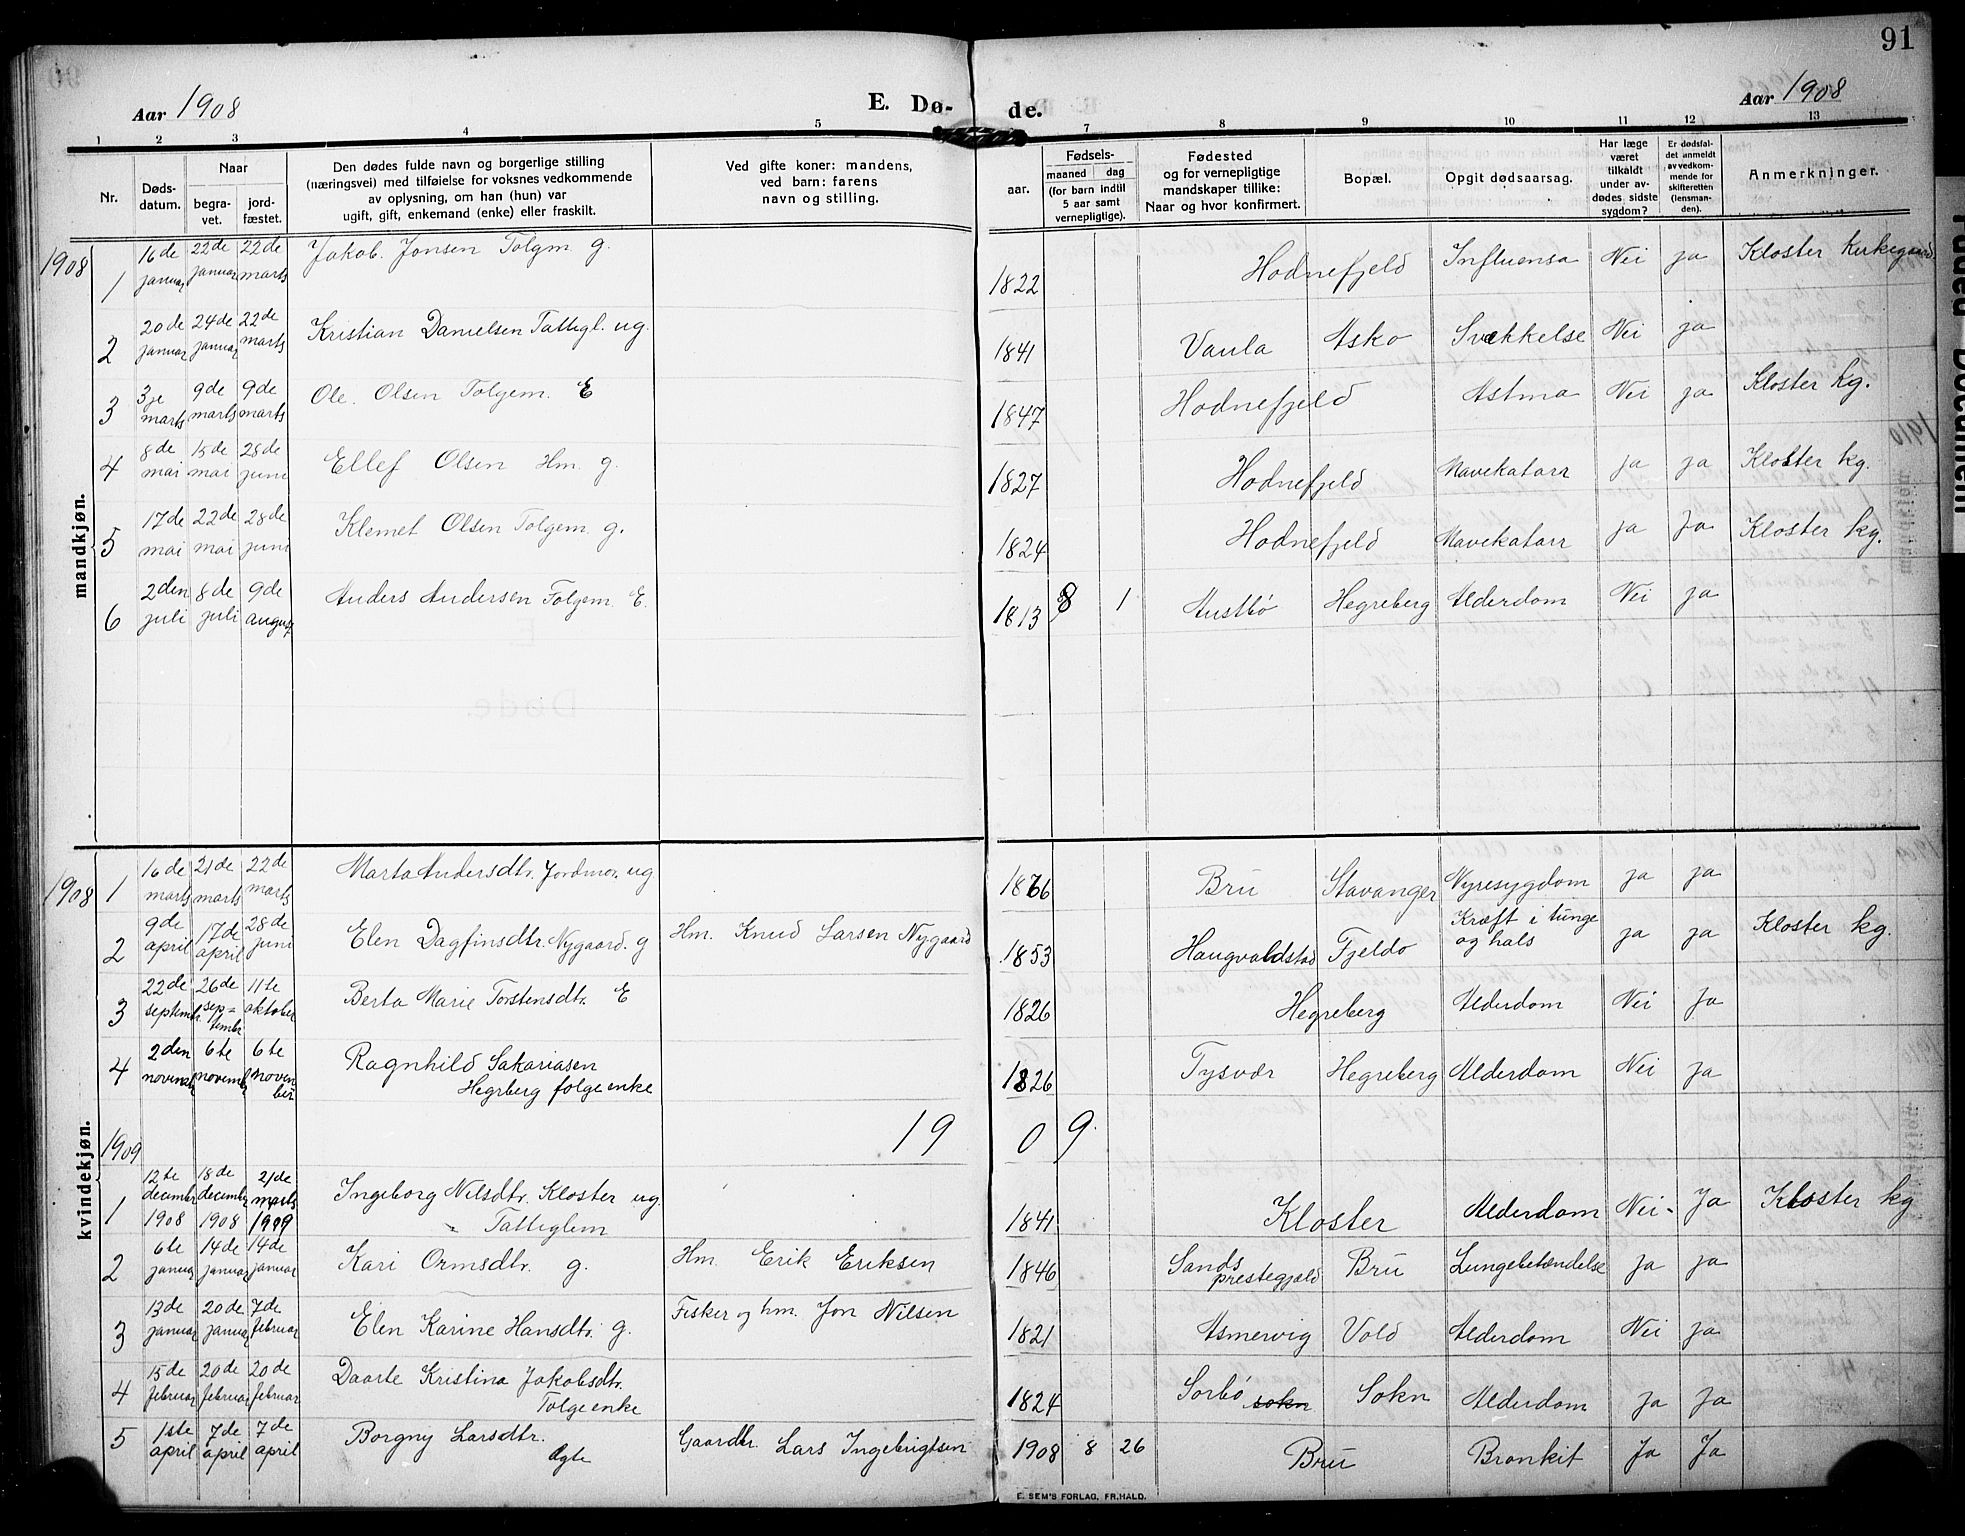 91
Aar 1908 E. Dø- de. Aar 1908
1 2 3 4 5 7 8 9 10 11 12 13
Nr. Døds-datum. Naar begra-vet. jord-fæstet. Den dødes fulde navn og borgerlige stilling (næringsvei) med tilføielse for voksnes vedkommende av oplysning, om han (hun) var ugift, gift, enkemand (enke) eller fraskilt. Ved gifte koner: mandens, ved barn: farens navn og stilling. aar. Fødsels- maaned dag (for barn indtil 5 aar samt vernepligtige). Fødested og for vernepligtige mandskaper tillike: Naar og hvor konfirmert. Bopæl. Opgit dødsaarsag. Har læge været tilkaldt under av-dødes sidste sygdom? Er dødsfal-det anmeldt av vedkom-mende for skifteretten (lensman-den). Anmerkninger.
mandkjøn.
1908 1 16de januar 22de januar 22de marts Jakob. Jonsen Folgm. g. 1822 Hodnefjeld Influensa Nei ja Kloster Kirkegaard.
2 20de januar 24de januar 22de marts Kristian Danielsen Fattigl. ug. 1841 Vaula Asko Svekkelse Nei ja
3 3je marts 9de marts 9de marts Ole. Olsen Folgem. E 1847 Hodnefjeld Astma Nei ja Kloster kg.
4 8de mai 15de mai 28de juni Ellef Olsen Hm. g. 1827 Hodnefjeld Mavekatarr ja ja Kloster kg.
5 17de mai 22de mai 28de juni Klemet Olsen Folgem. g. 1824 Hodnefjeld Mavekatarr ja Ja Kloster kg.
6 2den juli 8de juli 9de august Anders Andersen Folgem. E. 1813 8 1 Austbø Hegreberg Alderdom Nei ja
kvindekjøn.
1908 1 16de marts 21de marts 22de marts Marta Andersdtr. Jordmor. ug 1876 Bru Stavanger Nyresygdom ja ja
2 9de april 17de april 28de juni Elen Dagfinsdtr. Nygaard. g Hm. Knud Larsen Nygaard 1853 Haugvaldstad Fjeldo Kræft i tunge og hals ja ja Kloster kg.
3 22de septembr. 26de sep=tembr 11te oktober Berta Marie Torstensdtr. E 1826 Hegreberg Alderdom Nei Ja
4 2den novembr 6te novembr 6te novenber Ragnhild Sakariasen Hegrberg folge enke 1826 Tysvær Hegreberg Alderdom Nei ja
1909 19 09.
1 12te decembr 1908 18de decembr 1908 21de marts 1909 Ingeborg Nilsdtr. Kloster ug. Fattiglem 1841 Kloster Alderdom Nei- Ja Kloster kg
2 6te januar 14de januar 14de januar Kari Ormsdtr. g. Hm. Erik Eriksen 1846 Sands prestegjæld Bru Lungebetændelse Ja ja
3 13de januar 20de januar 7de februar Elen Karine Hansdtr. g. Fisker og hm. Jon Nilsen 1821 Asmervig Vold Alderdom Nei ja
4 15de februar 20de februar 20de februar Daarte Kristina Jakobsdtr. Folge enke 1824 Sorbø sokn Sokn Alderdom Ja Ja
5 1ste april 7de april 7de april Borgny Larsdtr. Ægte Gaardbr. Lars Ingebrigtsen 1908 8 26 Bru Bronkit Ja Ja
E. SEM'S FORLAG, FR.HALD.